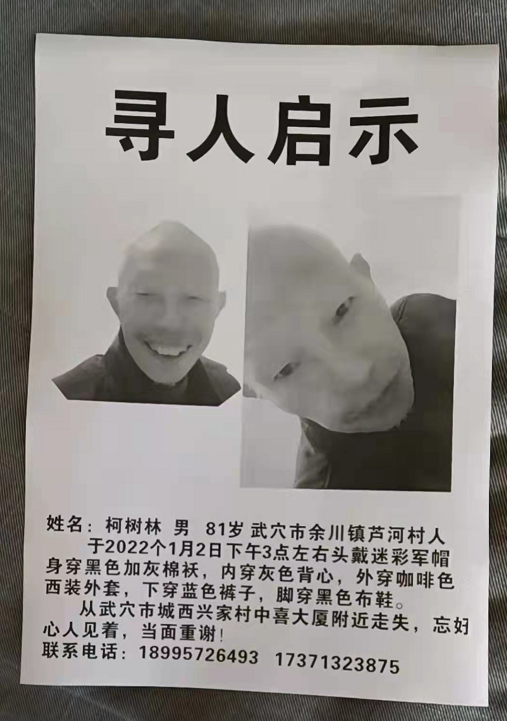 寻人启示
姓名：柯树林 男 81岁 武穴市余川镇芦河村人
于2022个1月2日下午3点左右头戴迷彩军帽
身穿黑色加灰棉袄，内穿灰色背心，外穿咖啡色
西装外套，下穿蓝色裤子，脚穿黑色布鞋。
从武穴市城西兴家村中喜大厦附近走失，忘好
心人见着，当面重谢！
联系电话：18995726493 17371323875